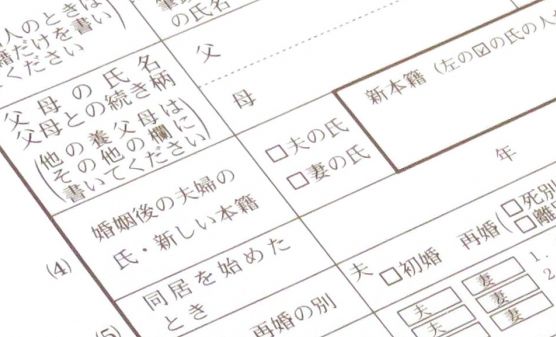 人のときは
籍だけを書い
てください
筆頭者
の氏名
父母の氏名
父母との続き柄
(他の養父母は
その他の欄に
書いてください)
父
母
(4)
婚姻後の夫婦の
氏・新しい本籍
□夫の氏
□妻の氏
新本籍(左の☑の氏の人
同居を始めた
とき
年
(5)
再婚の別
夫 □初婚 再婚(□死別
□離
夫 妻 1.
夫 妻 2
妻